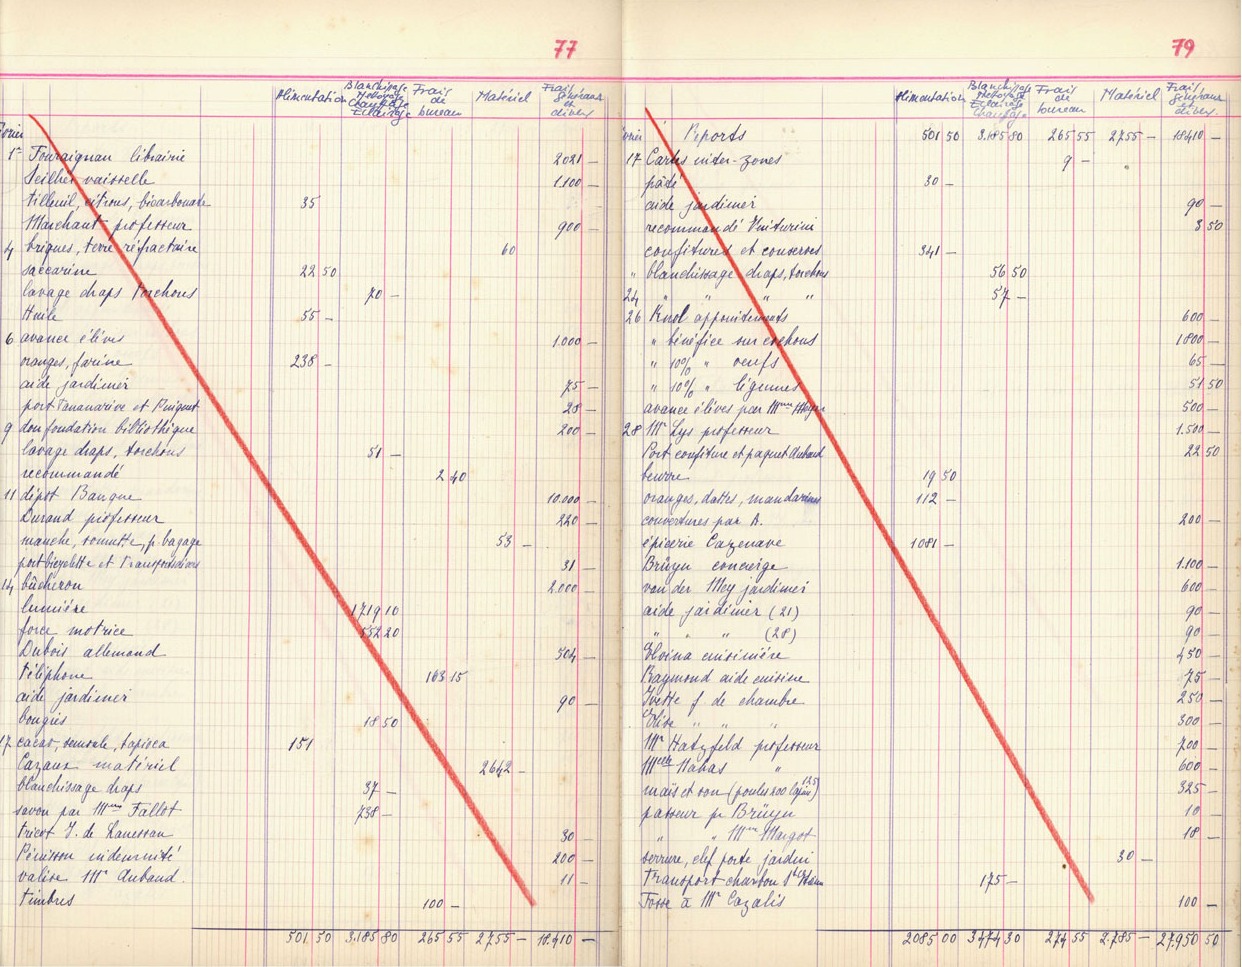 77
Alimentation Blanchissage Nettoyage Chauffage Eclairage Frais de bureau Matériel Frais généraux et divers
1er Fouraignan librairie 2021 —
Seilhes vaisselle 1.100 —
tilleuil, citrons, bicarbonate 35
Marchant professeur 900 —
4 briques, terre réfractaire 60
saccarine 22 50
lavage draps torchons 70 —
Huile 55 —
6 avance élèves 1.000 —
oranges, farine 238 —
aide jardinier 75 —
port Tananarive et Puiguet 28 —
9 don fondation bibliothèque 200 —
lavage draps, torchons 51 —
recommandé 2 40
11 dépôt Banque 10.000 —
Durand professeur 220 —
manche, roulette, p. bagage 53 —
port bicyclette et Transports divers 31 —
14 bûcheron 2.000 —
lumière 1719 10
force motrice 552 20
Dubois allemand 504 —
téléphone 163 15
aide jardinier 90 —
bougies 18 50
17 cacao, semoule, tapioca 151
Cazaux matériel 2642 —
blanchissage draps 37 —
savon par Mme Fallot 738 —
tricot J. de Lanessan 30 —
Pénisson indemnité 200 —
valise Mr Aubaud 11 —
timbres 100 —
501 50 3.185 80 265 55 2755 — 18.410 —
79
Alimentation Blanchissage Nettoyage Eclairage Chauffage Frais de bureau Matériel Frais généraux et divers
Reports 501 50 3.185 80 265 55 2755 — 18410 —
17 Cartes inter-zones 9 —
pâté 30 —
aide jardinier 90 —
recommandé Vuiturini 3 50
confitures et conserves 341 —
" blanchissage draps, torchons 56 50
24 " " " " 57 —
26 Knol appointements 600 —
" bénéfice sur cochons 1800 —
" 10% " oeufs 65 —
" 10% " légumes 51 50
avance élèves par Mme 500 —
28 Mr Lys professeur 1.500 —
Port confiture et paquet Aubaud 22 50
beurre 19 50
oranges, dattes, mandarines 112 —
couvertures par A. 200 —
épicerie Cazenave 1081 —
Brüyn concierge 1.100 —
van der Mey jardinier 600 —
aide jardinier (21) 90 —
" " " (28) 90 —
Elvina cuisinière 450 —
Raymond aide cuisine 75 —
Yvette f. de chambre 250 —
Elise " " " 300 —
Mr Hatzfeld professeur 700 —
Melle Havas " 600 —
maïs et son (poules 200 lapins 125) 325 —
passeur pr Brüyn 10 —
" " Mme Margot 18 —
serrure, clef porte jardin 30 —
Transport charbon 175 —
Fosse à Mr Cazalis 100 —
2085 00 3474 30 274 55 2.785 — 27.950 50